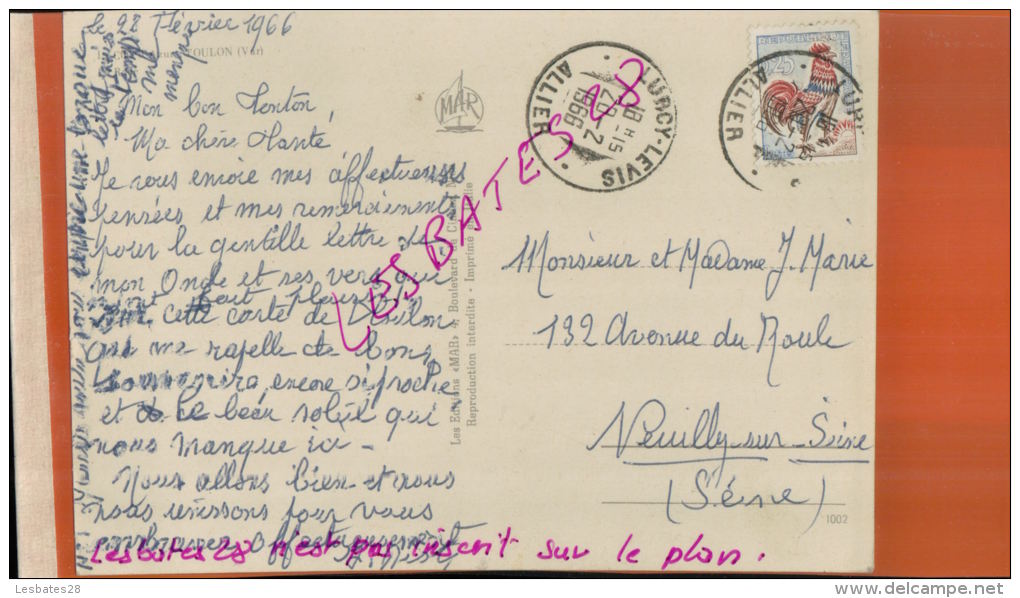 Le 28 Février 1966
TOULON (Var)
Mon bon Tonton
Ma chère Tante
Je vous envoie mes affectueuses
pensées et mes remerciements
pour la gentille lettre de
mon Oncle et ses vers qui
m'ont fait plaisir
cette carte de Toulon
qui me rapelle de bons
souvenirs, encore si proche
et le beau soleil qui
nous manque ici -
Nous allons bien et nous
nous unissons pour vous
embrasser affectueusement
lettre après
le temps
me
manque
MAR
Les Editions «MAR» 4, Boulevard de
Reproduction interdite - Imprimé en Italie
LES BATES 28
TURCY-LEVIS
18 H -15
20 -2
1966
ALLIER
0,25
ALLIER
Monsieur et Madame J. Marie
132 Avenue du Roule
Neuilly sur Seine
(Seine)
1002
Lesbates28 n'est pas inscrit sur le plan.
Lesbates28
www.delcampe.net